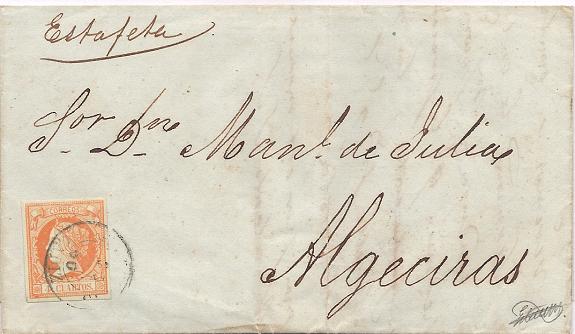 Estafeta
Sor Dn Manl. de Julia
Algeciras
CORREOS
CUARTOS